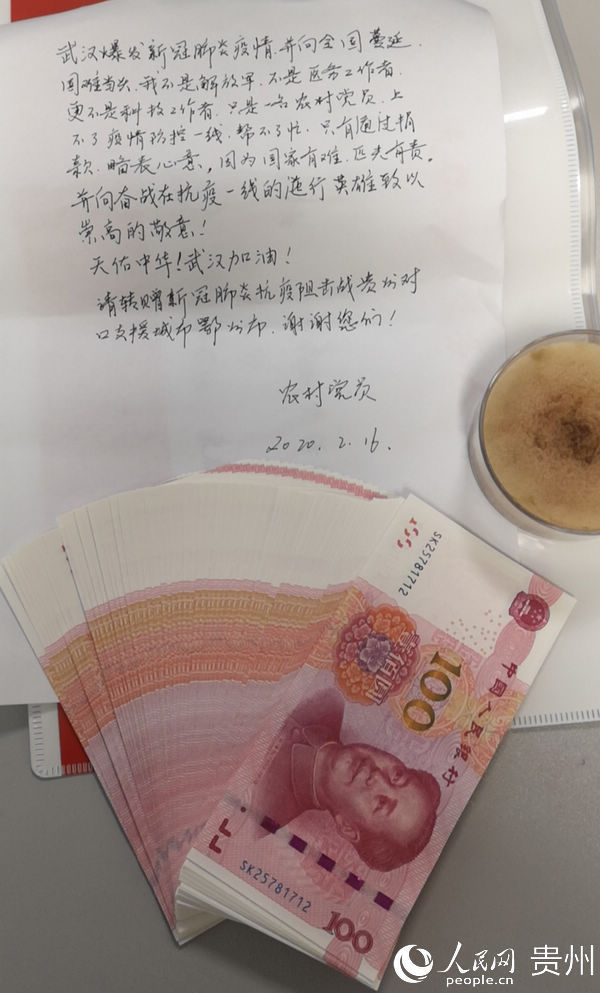 武汉爆发新冠肺炎疫情.并向全国蔓延.
国难当头.我不是解放军.不是医务工作者.
更不是科技工作者.只是一名农村党员.上
不了疫情防控一线.帮不了忙.只有通过捐
款.略表心意。因为国家有难.匹夫有责。
并向奋战在抗疫一线的逆行英雄致以
崇高的敬意!
天佑中华!武汉加油!
请转赠新冠肺炎抗疫阻击战贵州对
口支援城市鄂州市.谢谢您们!
农村党员
2020.2.16.
SK25781712
中国人民银行
100
壹佰圆
SK25781712
100
人民网 贵州
people.cn